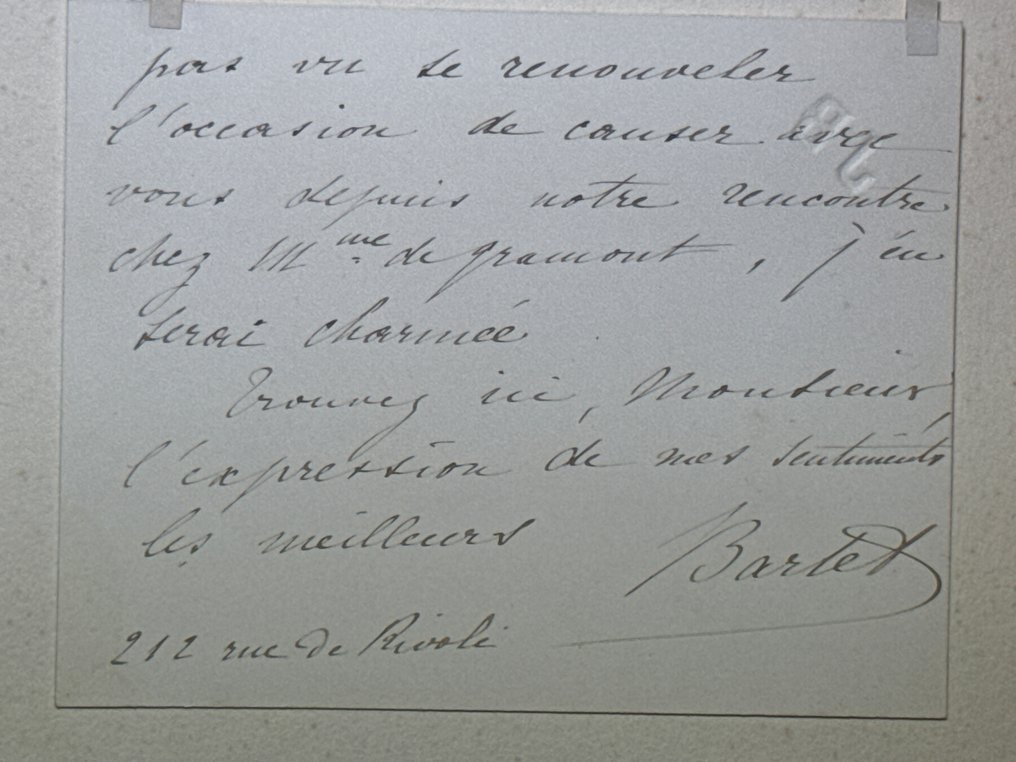 pas vu se renouveler
l'occasion de causer avec
vous depuis notre rencontre
chez Mme de Gramont, j'en
serai charmée
Trouvez ici, Monsieur,
l'expression de mes sentiments
les meilleurs
Bartet
212 rue de Rivoli